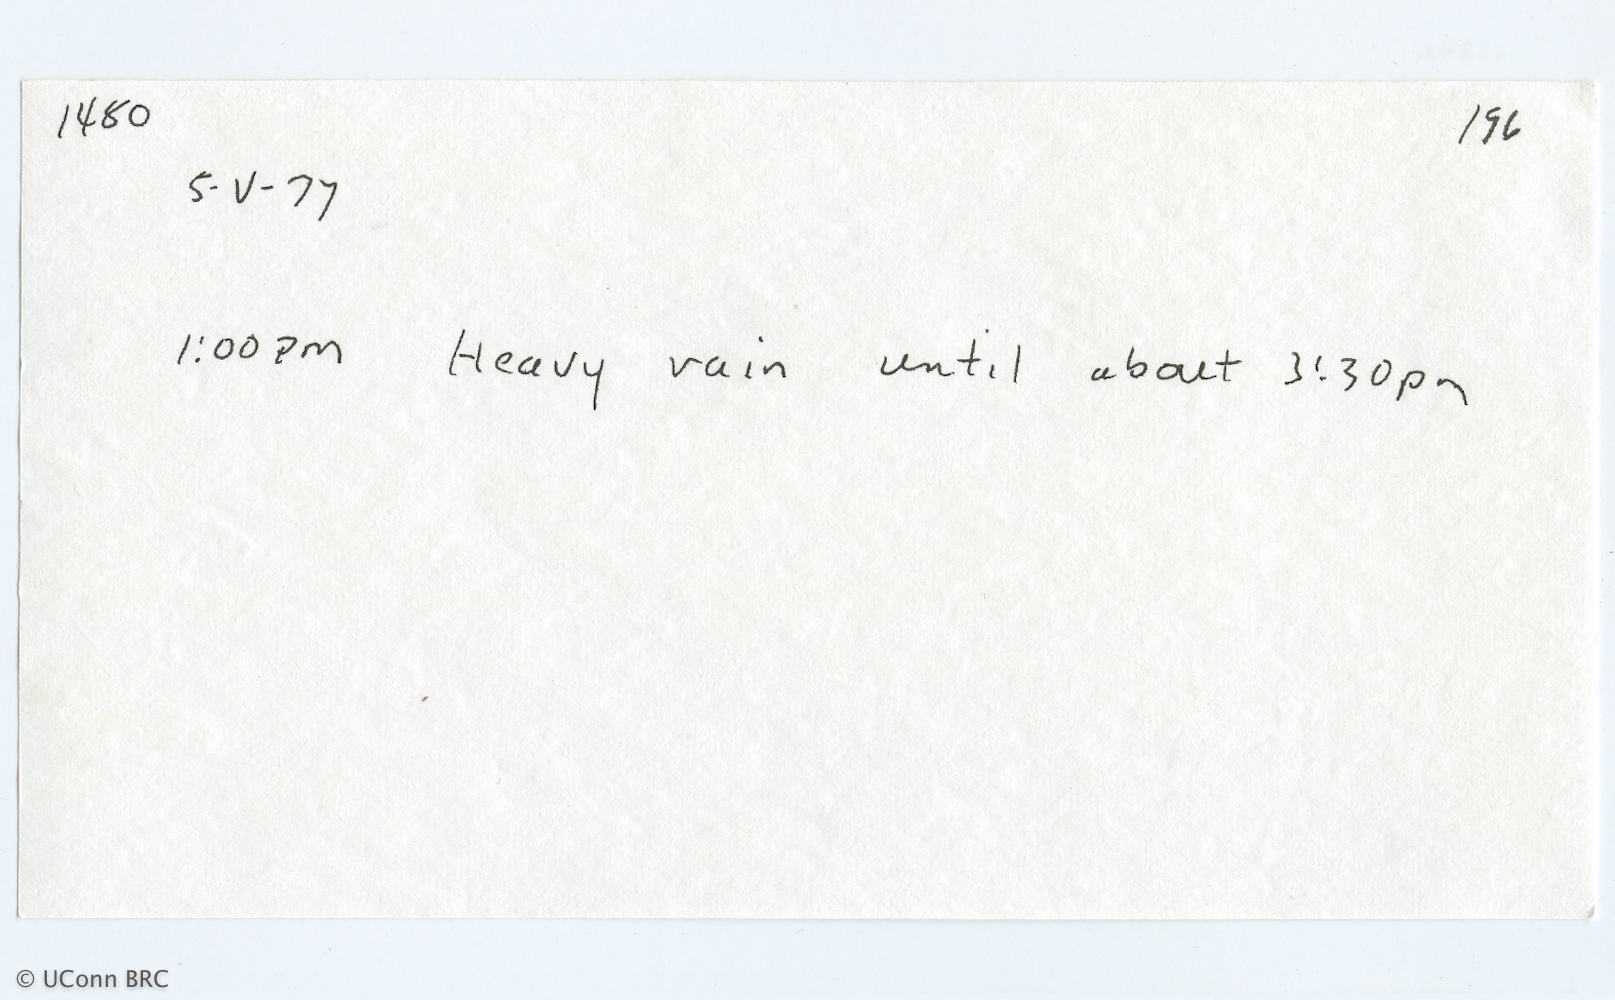 1480 196
5-V-77
1:00 pm Heavy rain until about 3:30pm
© UConn BRC